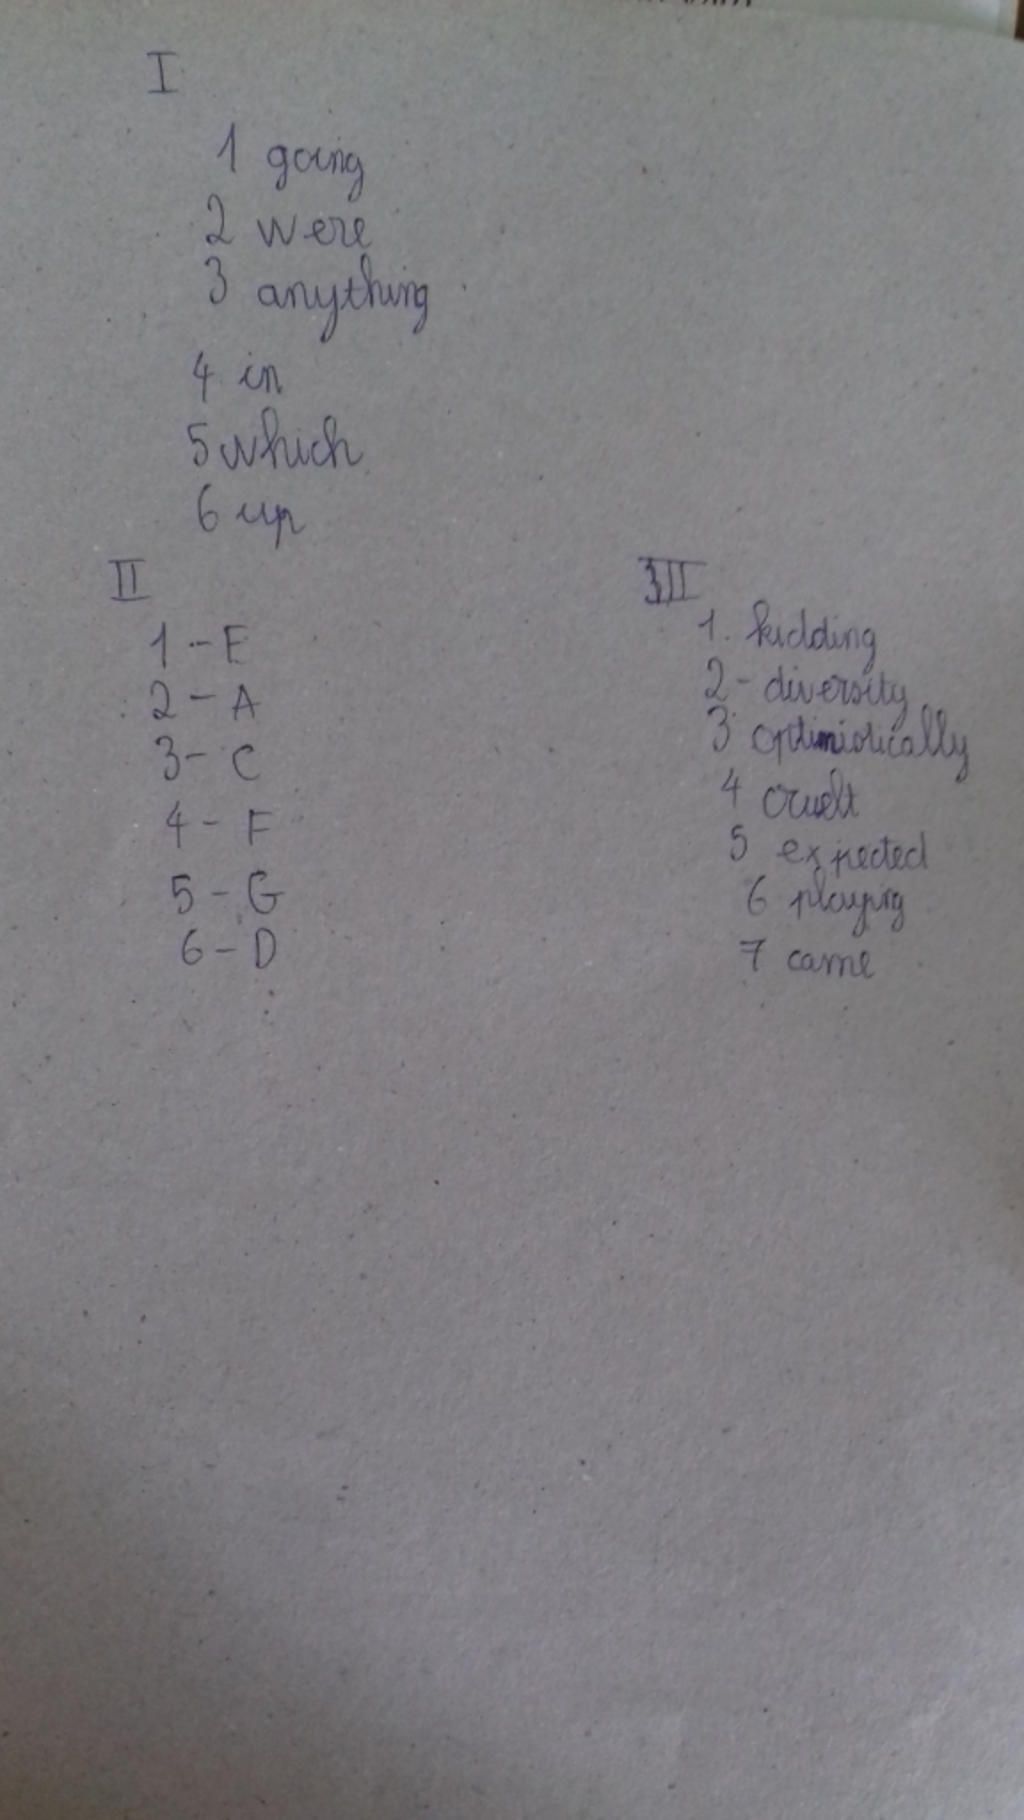 I
1 going
2 were
3 anything
4 in
5 which
6 up
II
1 - E
2 - A
3 - C
4 - F
5 - G
6 - D
III
1. kidding
2 - diversity
3 optimistically
4
5 expected
6 playing
7 came